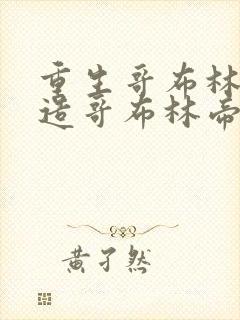 重生哥布林
造哥布林帝
黄孑然